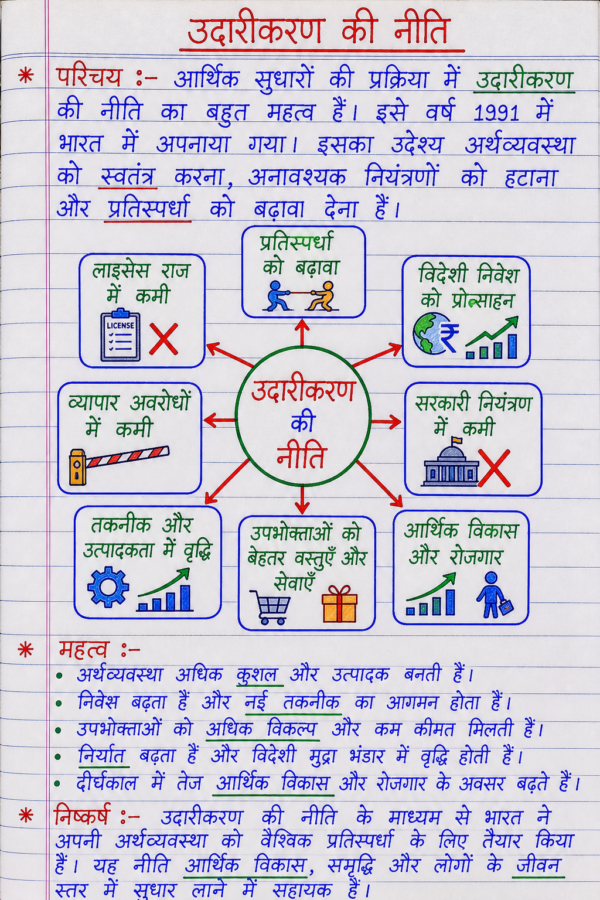 उदारीकरण की नीति
* परिचय :- आर्थिक सुधारों की प्रक्रिया में उदारीकरण
की नीति का बहुत महत्व हैं। इसे वर्ष 1991 में
भारत में अपनाया गया। इसका उदेश्य अर्थव्यवस्था
को स्वतंत्र करना, अनावश्यक नियंत्रणों को हटाना
और प्रतिस्पर्धा को बढ़ावा देना हैं।
प्रतिस्पर्धा
को बढ़ावा
लाइसेस राज
में कमी
LICENSE
विदेशी निवेश
को प्रोत्साहन
₹
व्यापार अवरोधों
में कमी
उदारीकरण
की
नीति
सरकारी नियंत्रण
में कमी
तकनीक और
उत्पादकता में वृद्धि
उपभोक्ताओं को
बेहतर वस्तुएँ और
सेवाएँ
आर्थिक विकास
और रोजगार
* महत्व :-
• अर्थव्यवस्था अधिक कुशल और उत्पादक बनती हैं।
• निवेश बढ़ता हैं और नई तकनीक का आगमन होता हैं।
• उपभोक्ताओं को अधिक विकल्प और कम कीमत मिलती हैं।
• निर्यात बढ़ता हैं और विदेशी मुद्रा भंडार में वृद्धि होती हैं।
• दीर्घकाल में तेज आर्थिक विकास और रोजगार के अवसर बढ़ते हैं।
* निष्कर्ष :- उदारीकरण की नीति के माध्यम से भारत ने
अपनी अर्थव्यवस्था को वैश्विक प्रतिस्पर्धा के लिए तैयार किया
हैं। यह नीति आर्थिक विकास, समृद्धि और लोगों के जीवन
स्तर में सुधार लाने में सहायक हैं।